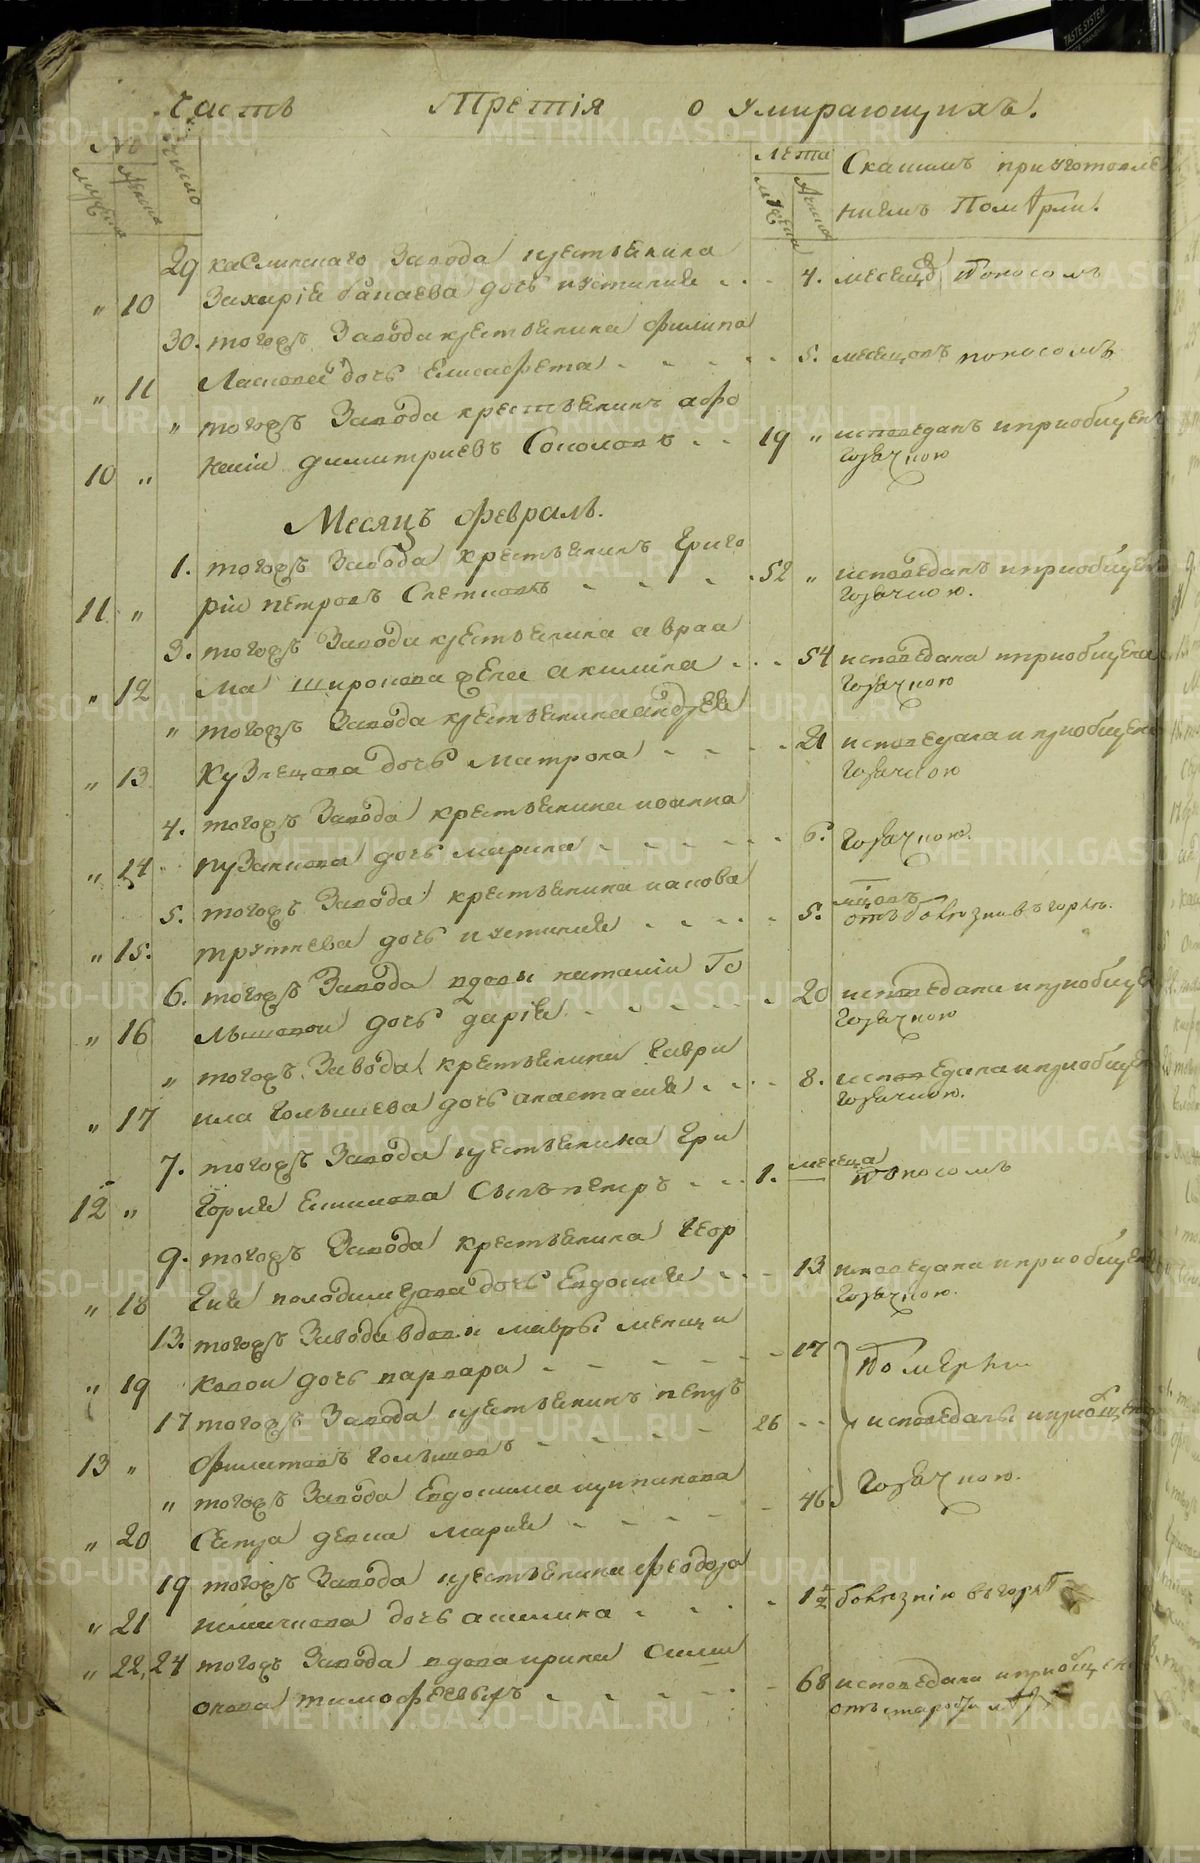 Часть Третія о Умирающихъ.
№ число лета Скакимъ приуготовле
мужеска женска мужеска женска ниемъ Помѣрли.
29 каслинскаго Завода крестьянина
" 10 Захаріи дочь иустинія 4. месяцов поносомъ
30. тогожъ Завода крестьянина филипа
" 11 дочь Елисафета 5. месяцовъ поносомъ
" тогожъ Завода крестьянинъ афо
10 " насіи димитриевъ Соколовъ 19 " исповеданъ иприобщенъ
горячкою
Месяцъ февраль.
1. тогожъ Завода крестьянинъ Григо
11 " рій петровъ 52 " исповеданъ иприобщенъ
горячкою.
3. тогожъ Завода крестьянина авраа
" 12 ма широкова жена акилина 54 исповедана иприобщена
горячкою
" тогожъ Завода крестьянина андрея
" 13 Кузнецова дочь матрона 21 исповедана иприобщена
горячкою
4. тогожъ Завода крестьянина иоанна
" 14 пузанкова дочь марина 6. горячкою.
5. тогожъ Завода крестьянина иакова
" 15. дочь иустинія 5. мцовъ
отъ болезни въ горле.
6. тогожъ Завода вдовы наталіи Го
" 16 лышевои дочь дарія 20 исповедана иприобщена
горячкою
" тогожъ Завода крестьянина гаври
" 17 ила голышева дочь анастасія 8. исповедана иприобщена
горячкою.
7. тогожъ Завода крестьянина Гри
12 " горія Сынъ петръ 1. месеца поносомъ
9. тогожъ Завода крестьянина геор
" 18 гия дочь Евдокия 13 исповедана иприобщена
горячкою.
13. тогожъ Завода вдовы мавры
" 19 ковои дочь варвара 17 Померли
17 тогожъ Завода крестьянинъ петръ
13 " голышовъ 26 исповеданы иприобщены
" тогожъ Завода Евдокима
" 20 Сестра девка мария 46 горячкою.
19 тогожъ Завода крестьянина феодора
" 21 дочь акилина 1½ болезнію въ горлѣ
" 22, 24 тогожъ Завода вдова ирина Сили
онова тимофеевыхъ 68 исповедана иприобщена
отъ старости
METRIKI.GASO-URAL.RU
TASTE SYSTEM